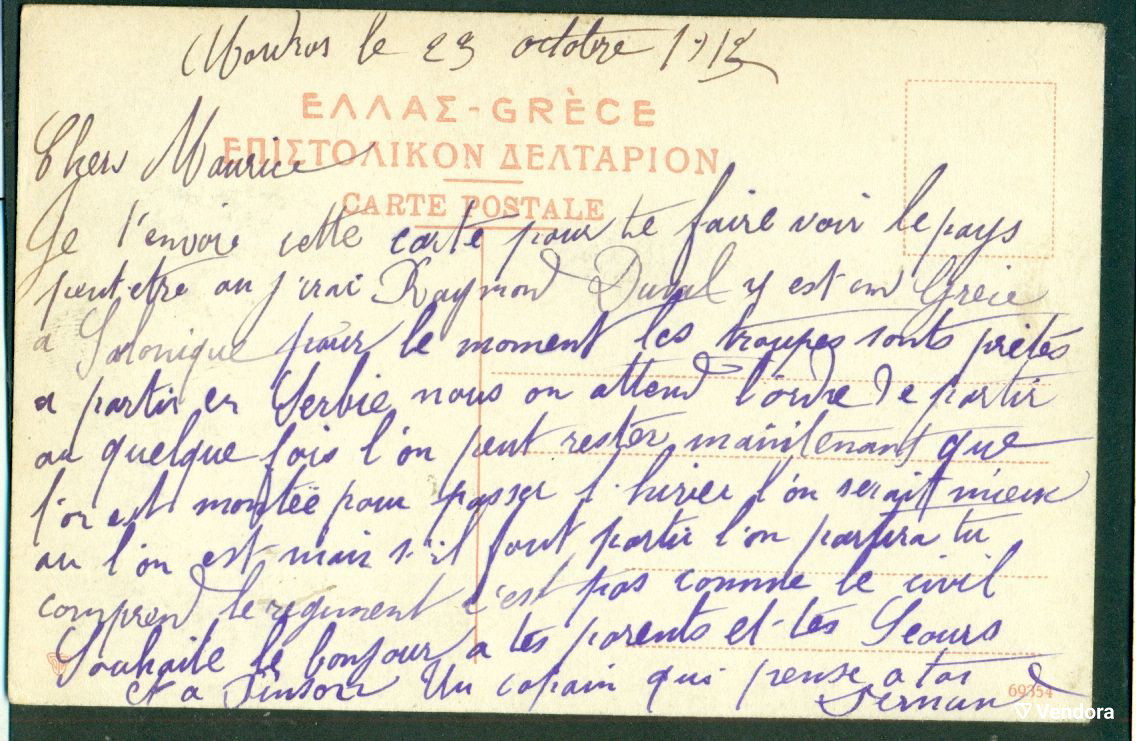 Moudros le 23 octobre 1915
ΕΛΛΑΣ-GRÈCE
Cher Maurice
ΕΠΙΣΤΟΛΙΚΟΝ ΔΕΛΤΑΡΙΟΝ
CARTE POSTALE
Je t'envoie cette carte pour te faire voir le pays
peut-etre ou j'irai Raymond Duval y est en Grece
a Salonique pour le moment les troupes sont prêtes
a partir en Serbie nous on attend l'ordre de partir
ou quelque fois l'on peut rester maintenant que
l'on est montée pour passer l'hivier l'on serait mieux
ou l'on est mais s'il faut partir l'on partira tu
comprend le regiment c'est pas comme le civil
Souhaite le bonjour a tes parents et tes Seours
et a Un copain qui pense a toi
Fernand
69354
Vendora